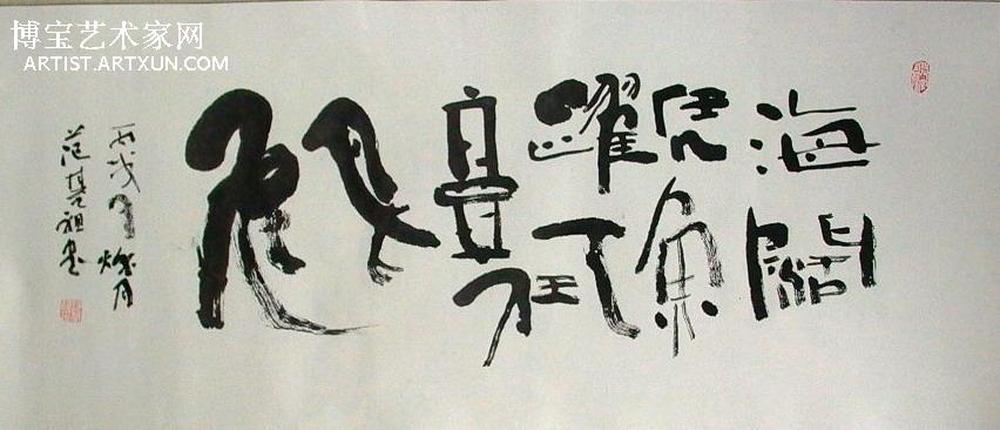 博宝艺术家网
ARTIST.ARTXUN.COM
海闊
凭魚
躍天
高任
鳥
飛
丙戌年 月
范基祖書